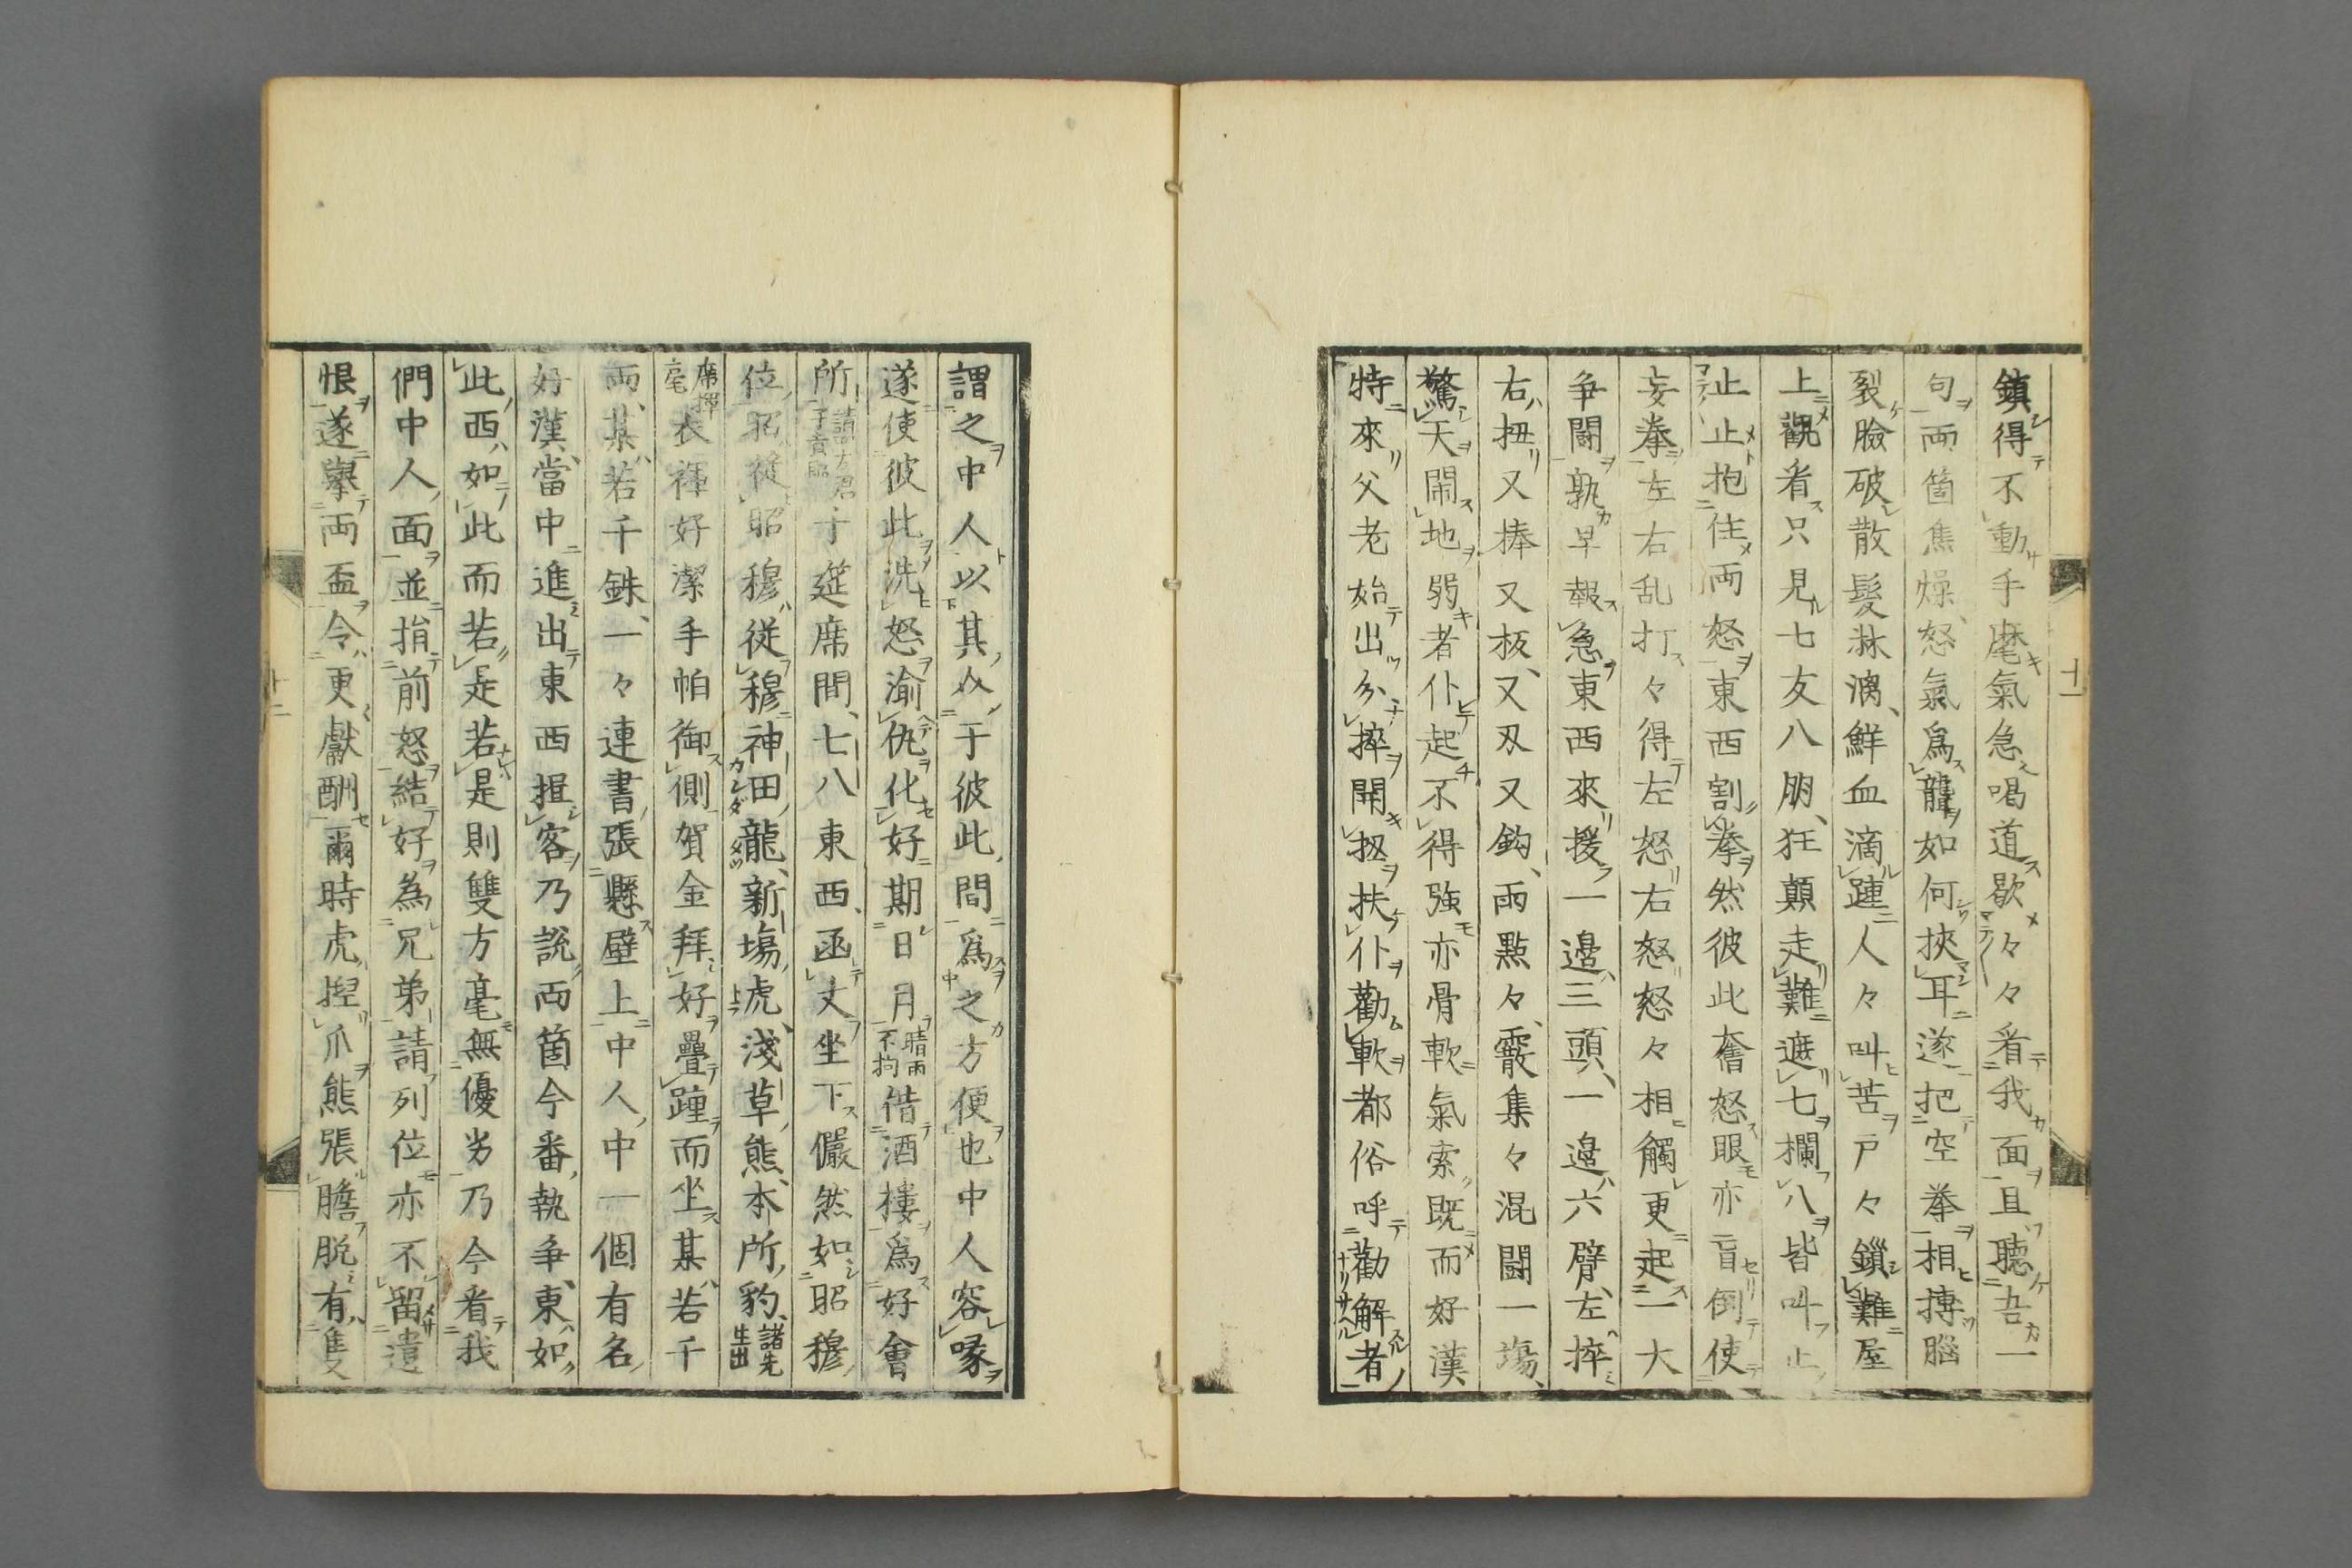 鎮得不動手麾氣急喝道歇々々看我面且聽吾一
句両箇焦燥怒氣爲龍如何挾耳遂把空拳相搏腦
裂臉破散髮淋漓、鮮血滴踵人々叫苦戸々鎖難屋
上觀看只見七友八朋、狂顛走難遮七欄八皆叫止
止止抱住両怒東西割拳然彼此奮怒眼亦盲倒使
妄拳左右乱打々得左怒右怒怒々相觸更起一大
争闘孰早報急東西來援一邉三頭、一邉六臂、左捽
右扭又捧又扳、又刄又鈎、雨點々、霰集々混闘一塲、
驚天閙地弱者仆起不得強亦骨軟氣索既而好漢
特來父老始出分捽開扱扶仆勸軟都俗呼勸解者
十一
謂之中人以其人于彼此間爲之方便也中人容喙
遂使彼此洗怒渝仇化好期日月晴雨不拘借酒樓爲好會
所請方君子賁臨于筵席間、七八東西、函丈坐下儼然如昭穆
位昭從昭穆從穆神田龍、新塲虎、淺草熊、本所豹、諸先生出
席揮毫表褌好潔手帕御側賀金拜好疊踵而坐某若千
両、某若千銖、一々連書張懸壁上中人中一個有名
好漢、當中進出東西揖客乃説両箇今番執争、東如
此西如此而若是若是則雙方毫無優劣乃今看我
們中人面並捐前怒結好為兄弟請列位亦不留遺
恨遂擧両盃令更獻酬爾時虎捏爪熊張膽脱有隻
十二